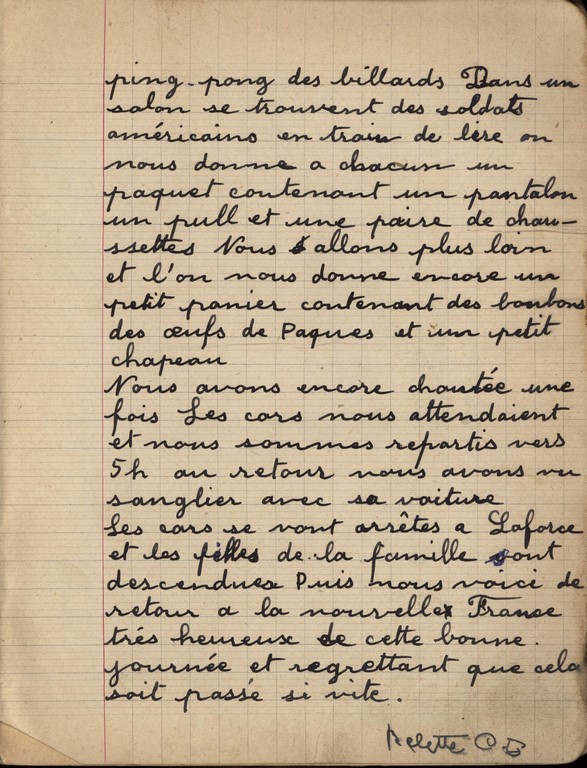 ping-pong des billards Dans un
salon se trouvent des soldats
américains en train de lire on
nous donne a chacun un
paquet contenant un pantalon
un pull et une paire de chau-
ssettes Nous allons plus loin
et l'on nous donne encore un
petit panier contenant des bonbons
des œufs de Paques et un petit
chapeau
Nous avons encore chautée une
fois Les cars nous attendaient
et nous sommes repartis vers
5h au retour nous avons vu
sanglier avec sa voiture
Les cars se vont arrêtes a Laforce
et les filles de la famille sont
descendues Puis nous voici de
retour a la nouvelle France
trés heureux de cette bonne.
journée et regrettant que cela
soit passé si vite.